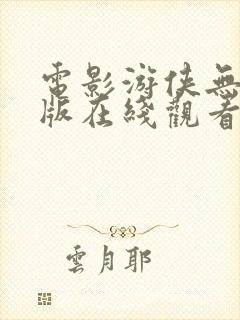 電影游俠無
版在綫觀看
雲月耶